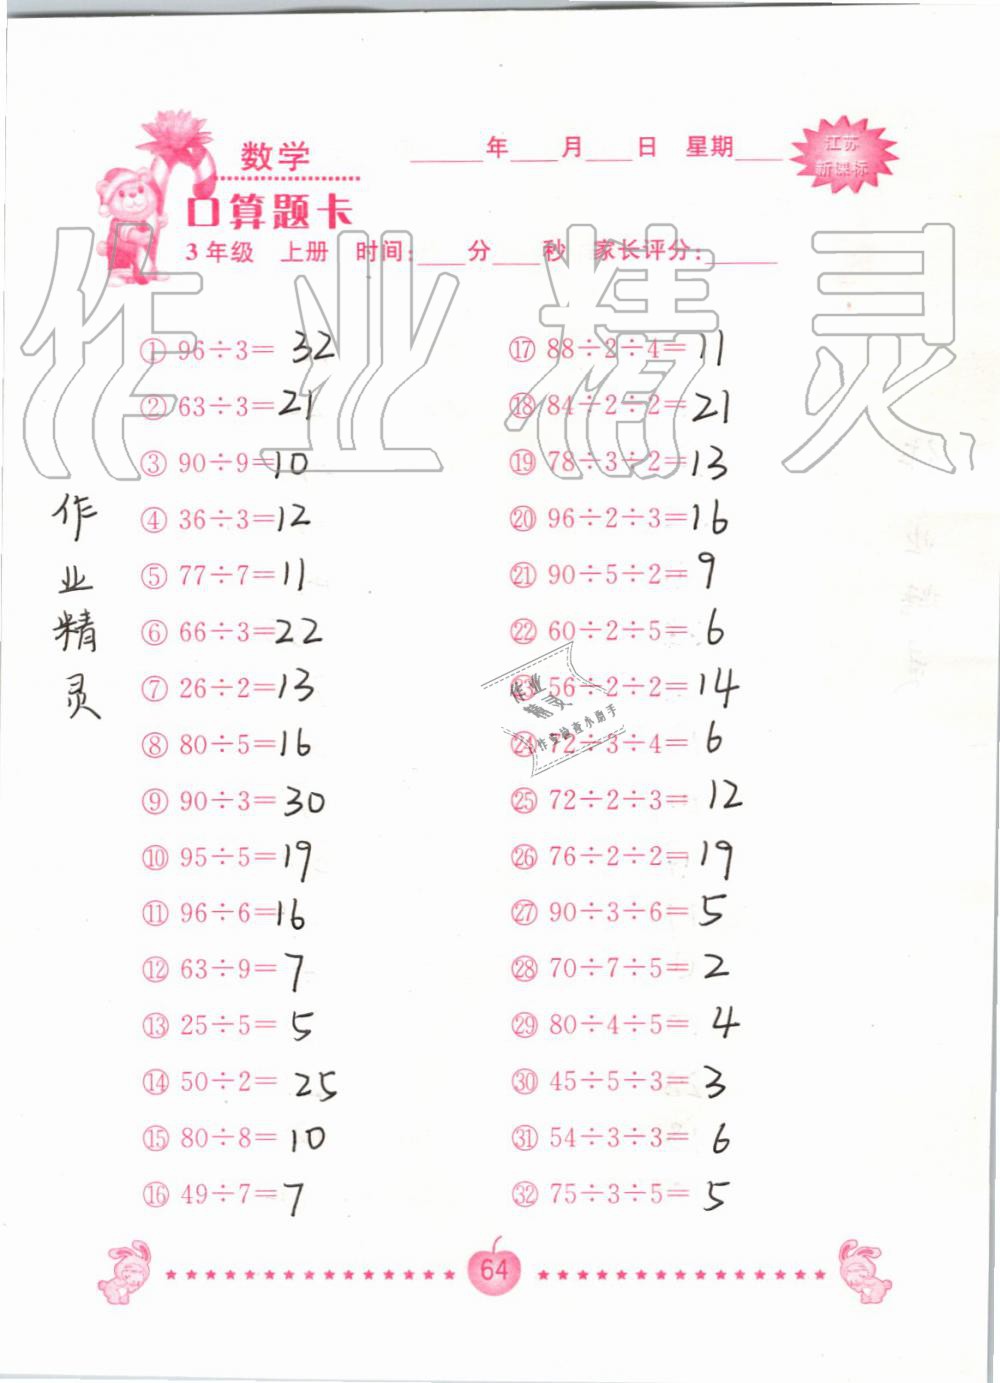 数学
____年____月____日 星期____
江苏
新课标
口算题卡
3年级 上册 时间:____分____秒 家长评分:______
作业精灵
① 96÷3= 32
② 63÷3= 21
③ 90÷9= 10
④ 36÷3= 12
⑤ 77÷7= 11
⑥ 66÷3= 22
⑦ 26÷2= 13
⑧ 80÷5= 16
⑨ 90÷3= 30
⑩ 95÷5= 19
⑪ 96÷6= 16
⑫ 63÷9= 7
⑬ 25÷5= 5
⑭ 50÷2= 25
⑮ 80÷8= 10
⑯ 49÷7= 7
⑰ 88÷2÷4= 11
⑱ 84÷2÷2= 21
⑲ 78÷3÷2= 13
⑳ 96÷2÷3= 16
㉑ 90÷5÷2= 9
㉒ 60÷2÷5= 6
㉓ 56÷2÷2= 14
㉔ 72÷3÷4= 6
㉕ 72÷2÷3= 12
㉖ 76÷2÷2= 19
㉗ 90÷3÷6= 5
㉘ 70÷7÷5= 2
㉙ 80÷4÷5= 4
㉚ 45÷5÷3= 3
㉛ 54÷3÷3= 6
㉜ 75÷3÷5= 5
作业精灵
作业
精灵
作业检查小助手
64